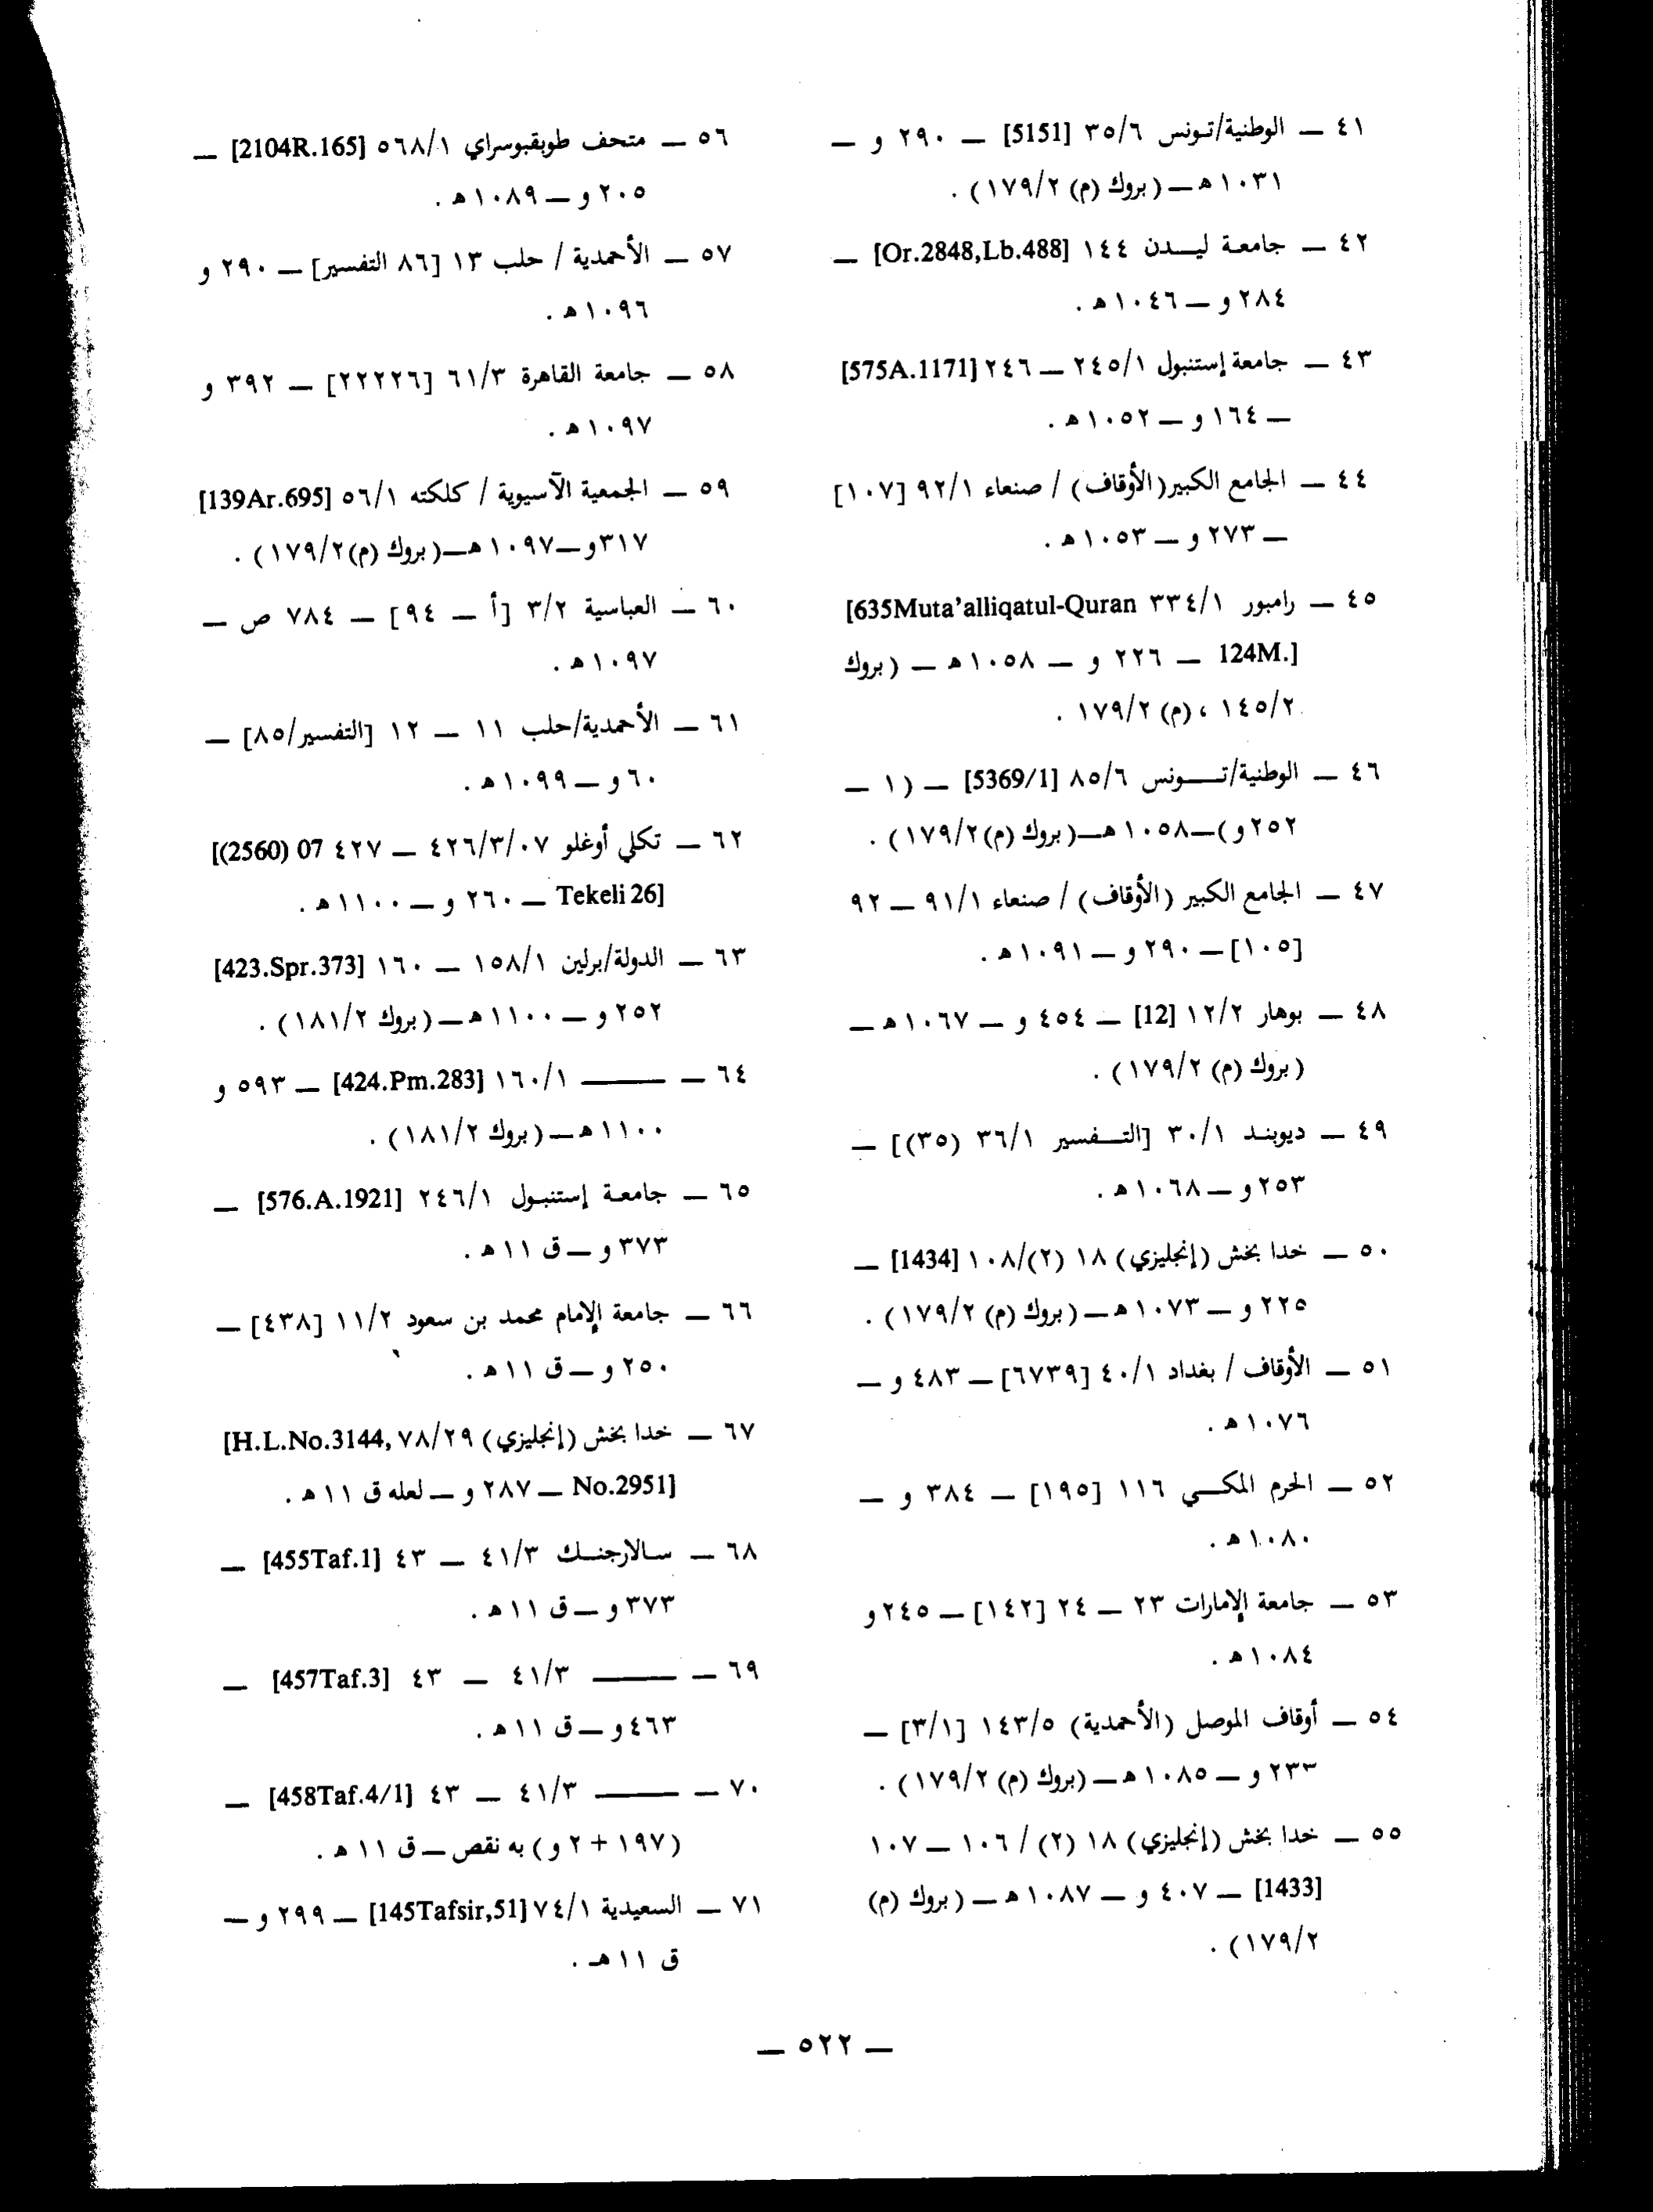 ٤١ — الوطنية/تونس ٣٥/٦ [5151] — ٢٩٠ و —
١٠٣١هـ — (بروك (م) ١٧٩/٢) .
٤٢ — جامعة ليـدن ١٤٤ [Or.2848,Lb.488] —
٢٨٤ و — ١٠٤٦هـ .
٤٣ — جامعة إستنبول ٢٤٥/١ — ٢٤٦ [575A.1171]
— ١٦٤ و — ١٠٥٢هـ .
٤٤ — الجامع الكبير(الأوقاف) / صنعاء ٩٢/١ [١٠٧]
— ٢٧٣ و — ١٠٥٣هـ .
٤٥ — رامبور ٣٣٤/١ [635Muta’alliqatul-Quran
124M.] — ٢٢٦ و — ١٠٥٨هـ — (بروك
١٤٥/٢ ، (م) ١٧٩/٢ .
٤٦ — الوطنية/تـونس ٨٥/٦ [5369/1] — (١ —
٢٥٢و) — ١٠٥٨هـ — (بروك (م) ١٧٩/٢) .
٤٧ — الجامع الكبير (الأوقاف) / صنعاء ٩١/١ — ٩٢
[١٠٥] — ٢٩٠ و — ١٠٩١هـ .
٤٨ — بوهار ١٢/٢ [12] — ٤٥٤ و — ١٠٦٧هـ —
(بروك (م) ١٧٩/٢) .
٤٩ — ديوبند ٣٠/١ [التـفسير ٣٦/١ (٣٥)] —
٢٥٣ و — ١٠٦٨هـ .
٥٠ — خدا بخش (إنجليزي) ١٨ (٢)/١٠٨ [1434] —
٢٢٥ و — ١٠٧٣هـ — (بروك (م) ١٧٩/٢) .
٥١ — الأوقاف / بغداد ٤٠/١ [٦٧٣٩] — ٤٨٣ و —
١٠٧٦هـ .
٥٢ — الحرم المكـي ١١٦ [١٩٥] — ٣٨٤ و —
١٠٨٠هـ .
٥٣ — جامعة الإمارات ٢٣ — ٢٤ [١٤٢] — ٢٤٥ و
١٠٨٤هـ .
٥٤ — أوقاف الموصل (الأحمدية) ١٤٣/٥ [٣/١] —
٢٣٣ و — ١٠٨٥هـ — (بروك (م) ١٧٩/٢) .
٥٥ — خدا بخش (إنجليزي) ١٨ (٢) / ١٠٦ — ١٠٧
[1433] — ٤٠٧ و — ١٠٨٧هـ — (بروك (م)
١٧٩/٢) .
٥٦ — متحف طوبقبوسراي ٥٦٨/١ [2104R.165] —
٢٠٥ و — ١٠٨٩هـ .
٥٧ — الأحمدية / حلب ١٣ [٨٦ التفسير] — ٢٩٠ و
١٠٩٦هـ .
٥٨ — جامعة القاهرة ٦١/٣ [٢٢٢٢٦] — ٣٩٢ و
١٠٩٧هـ .
٥٩ — الجمعية الآسيوية / كلكته ٥٦/١ [139Ar.695]
٣١٧و — ١٠٩٧هـ — (بروك (م) ١٧٩/٢) .
٦٠ — العباسية ٣/٢ [أ — ٩٤] — ٧٨٤ ص —
١٠٩٧هـ .
٦١ — الأحمدية/حلب ١١ — ١٢ [التفسير/٨٥] —
٦٠ و — ١٠٩٩هـ .
٦٢ — تكلي أوغلو ٤٢٦/٣/٠٧ — ٤٢٧ [(2560) 07
Tekeli 26] — ٢٦٠ و — ١١٠٠هـ .
٦٣ — الدولة/برلين ١٥٨/١ — ١٦٠ [423.Spr.373]
٢٥٢ و — ١١٠٠هـ — (بروك ١٨١/٢) .
٦٤ — ——— ١٦٠/١ [424.Pm.283] — ٥٩٣ و
١١٠٠هـ — (بروك ١٨١/٢) .
٦٥ — جامعة إستنبـول ٢٤٦/١ [576.A.1921] —
٣٧٣ و — ق ١١هـ .
٦٦ — جامعة الإمام محمد بن سعود ١١/٢ [٤٣٨] —
٢٥٠ و — ق ١١هـ .
٦٧ — خدا بخش (إنجليزي) ٧٨/٢٩ [H.L.No.3144,
No.2951] — ٢٨٧ و — لعله ق ١١هـ .
٦٨ — سـالارجنـك ٤١/٣ — ٤٣ [455Taf.1] —
٣٧٣ و — ق ١١هـ .
٦٩ — ——— ٤١/٣ — ٤٣ [457Taf.3] —
٤٦٣ و — ق ١١هـ .
٧٠ — ——— ٤١/٣ — ٤٣ [458Taf.4/1] —
(١٩٧ + ٢ و) به نقص — ق ١١هـ .
٧١ — السعيدية ٧٤/١ [145Tafsir,51] — ٢٩٩ و —
ق ١١هـ .
— ٥٢٢ —